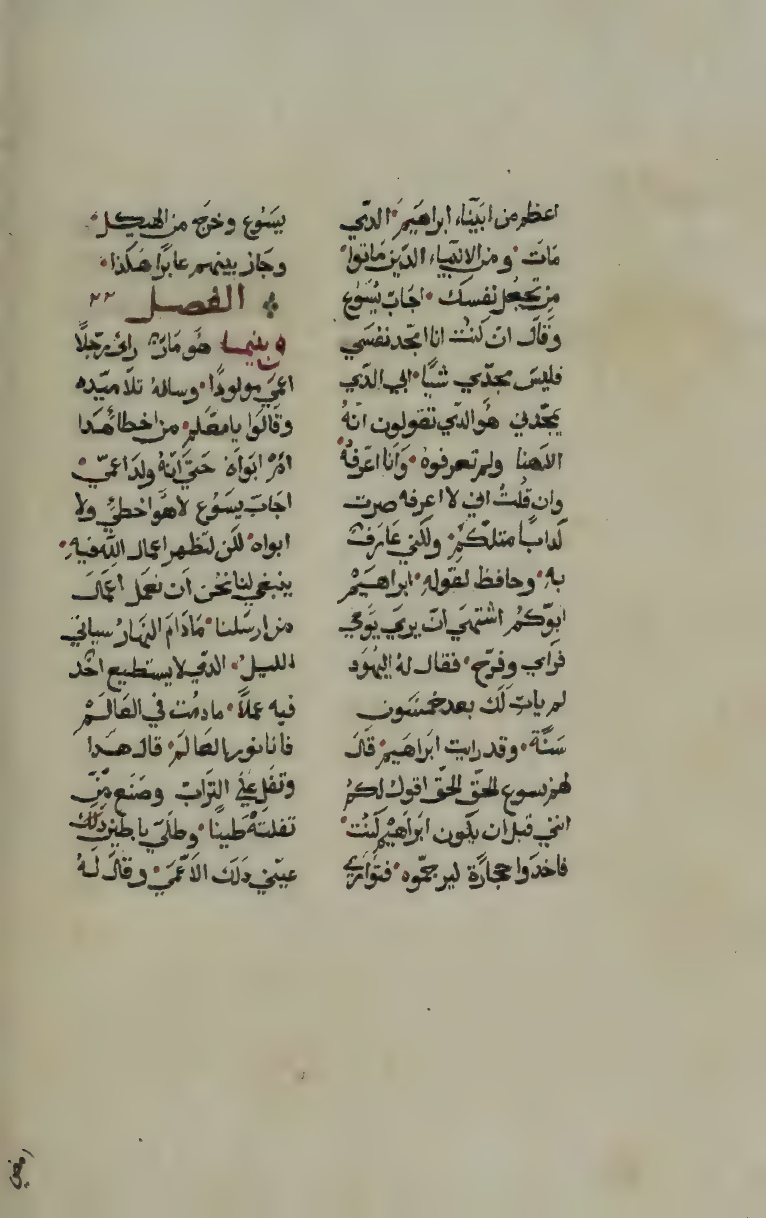 اعظم من ابينا ابراهيم الدي
مات ومن الانبياء الدين ماتوا
من تجعل نفسك اجاب يسوع
وقال ان كنت انا امجد نفسي
فليس مجدي شيا ابي الدي
يمجدني هو الدي تقولون انه
الاهنا ولم تعرفوه وانا اعرفه
وان قلت اني لا اعرفه صرت
كدابا متلكم ولكني عارف
به وحافظ لقوله ابراهيم
ابوكم اشتهي ان يري يومي
فراي وفرح فقال له اليهود
لم يات لك بعد خمسون
سنة وقد رايت ابراهيم قال
لهم يسوع الحق الحق اقول لكم
انني قبل ان يكون ابراهيم كنت
فاخدوا حجارة ليرجموه فتواري
يسوع وخرج من الهيكل
وجاز بينهم عابرا هكدا
الفصل ٢٢
وبينما هو مار راي رجلا
اعمي مولودا وساله تلاميده
وقالوا يا معلم من اخطا هدا
ام ابواه حتي انه ولد اعمي
اجاب يسوع لا هو اخطي ولا
ابواه لكن لتظهر اعمال الله فيه
ينبغي لنا نحن ان نعمل اعمال
من ارسلنا مادام النهار سياتي
الليل الدي لا يستطيع احد
فيه عملا ما دمت في العالم
فانا نور العالم قال هدا
وتفل علي التراب وصنع من
تفلته طينا وطلي بالطين
عيني دلك الاعمي وقال له